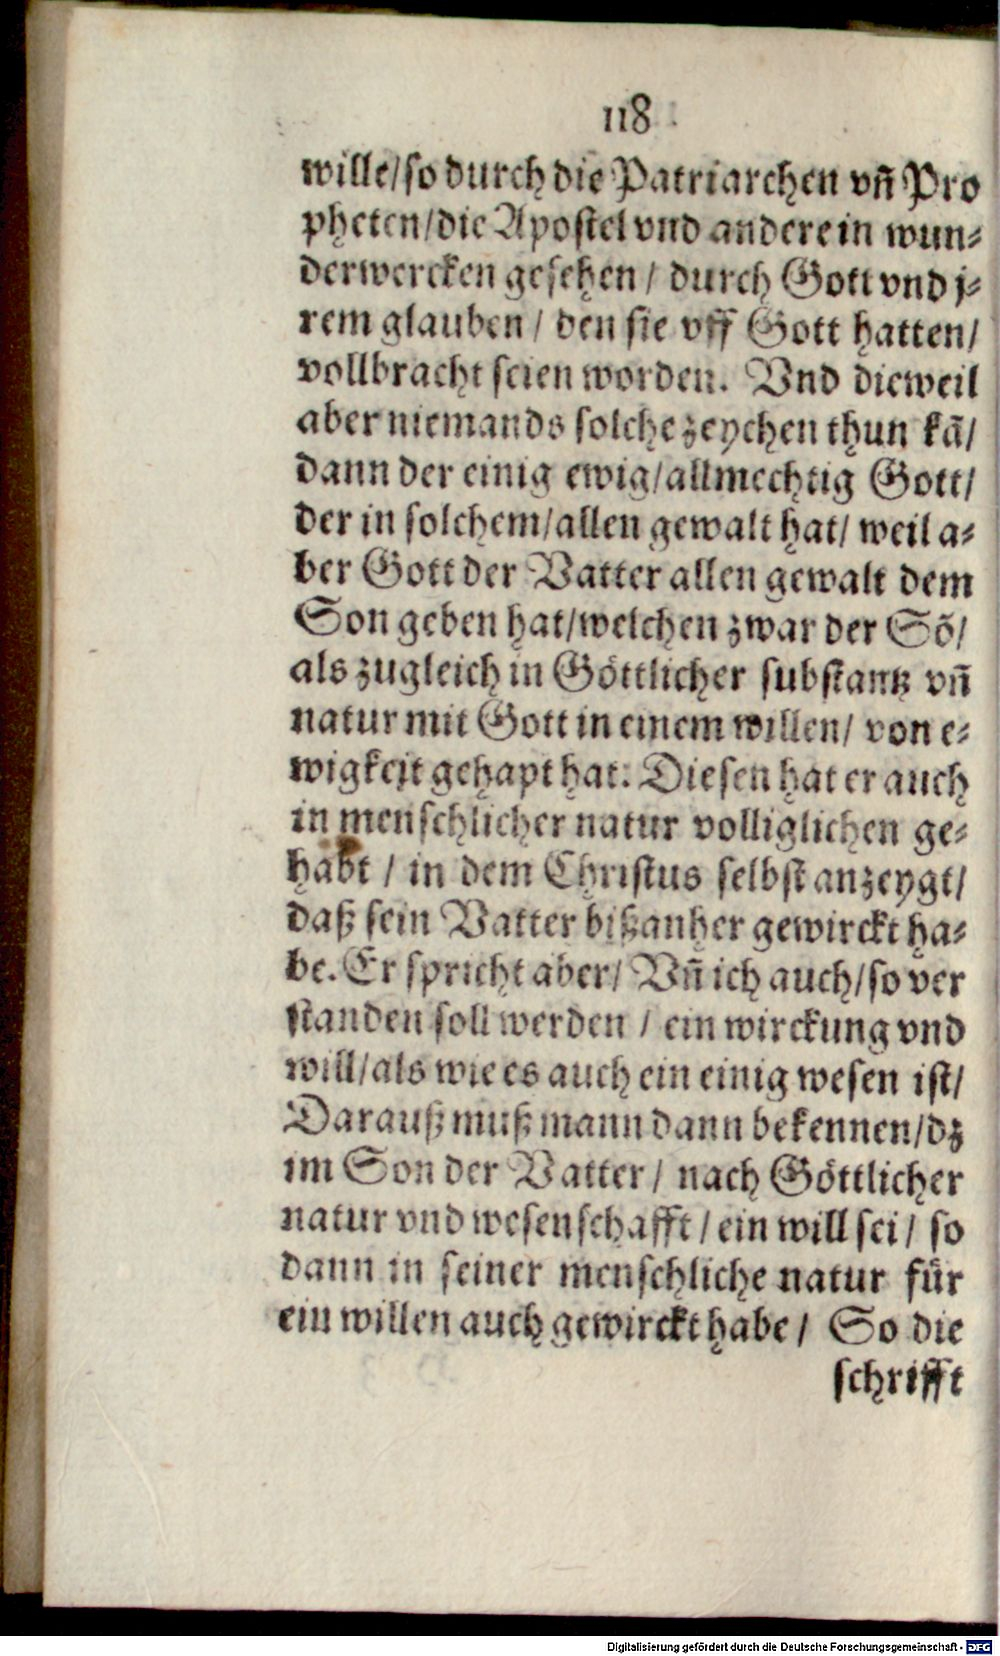 118
wille/so durch die Patriarchen vñ Pro
pheten/die Apostel vnd andere in wun-
derwercken gesehen / durch Gott vnd j-
rem glauben / den sie vff Gott hatten/
vollbracht seien worden. Vnd dieweil
aber niemands solche zeychen thun kā/
dann der einig ewig/allmechtig Gott/
der in solchem/allen gewalt hat/ weil a-
ber Gott der Vatter allen gewalt dem
Son geben hat/welchen zwar der Sō/
als zugleich in Göttlicher substantz vñ
natur mit Gott in einem willen/ von e-
wigkejt gehapt hat. Diesen hat er auch
in menschlicher natur volliglichen ge-
habt / in dem Christus selbst anzeygt/
daß sein Vatter bißanher gewirckt ha-
be. Er spricht aber/ Vñ ich auch/so ver
standen soll werden / ein wirckung vnd
will/als wie es auch ein einig wesen ist/
Darauß muß mann dann bekennen/dz
im Son der Vatter / nach Göttlicher
natur vnd wesenschafft / ein will sei / so
dann in seiner menschliche natur für
ein willen auch gewirckt habe / So die
schrifft
Digitalisierung gefördert durch die Deutsche Forschungsgemeinschaft - DFG